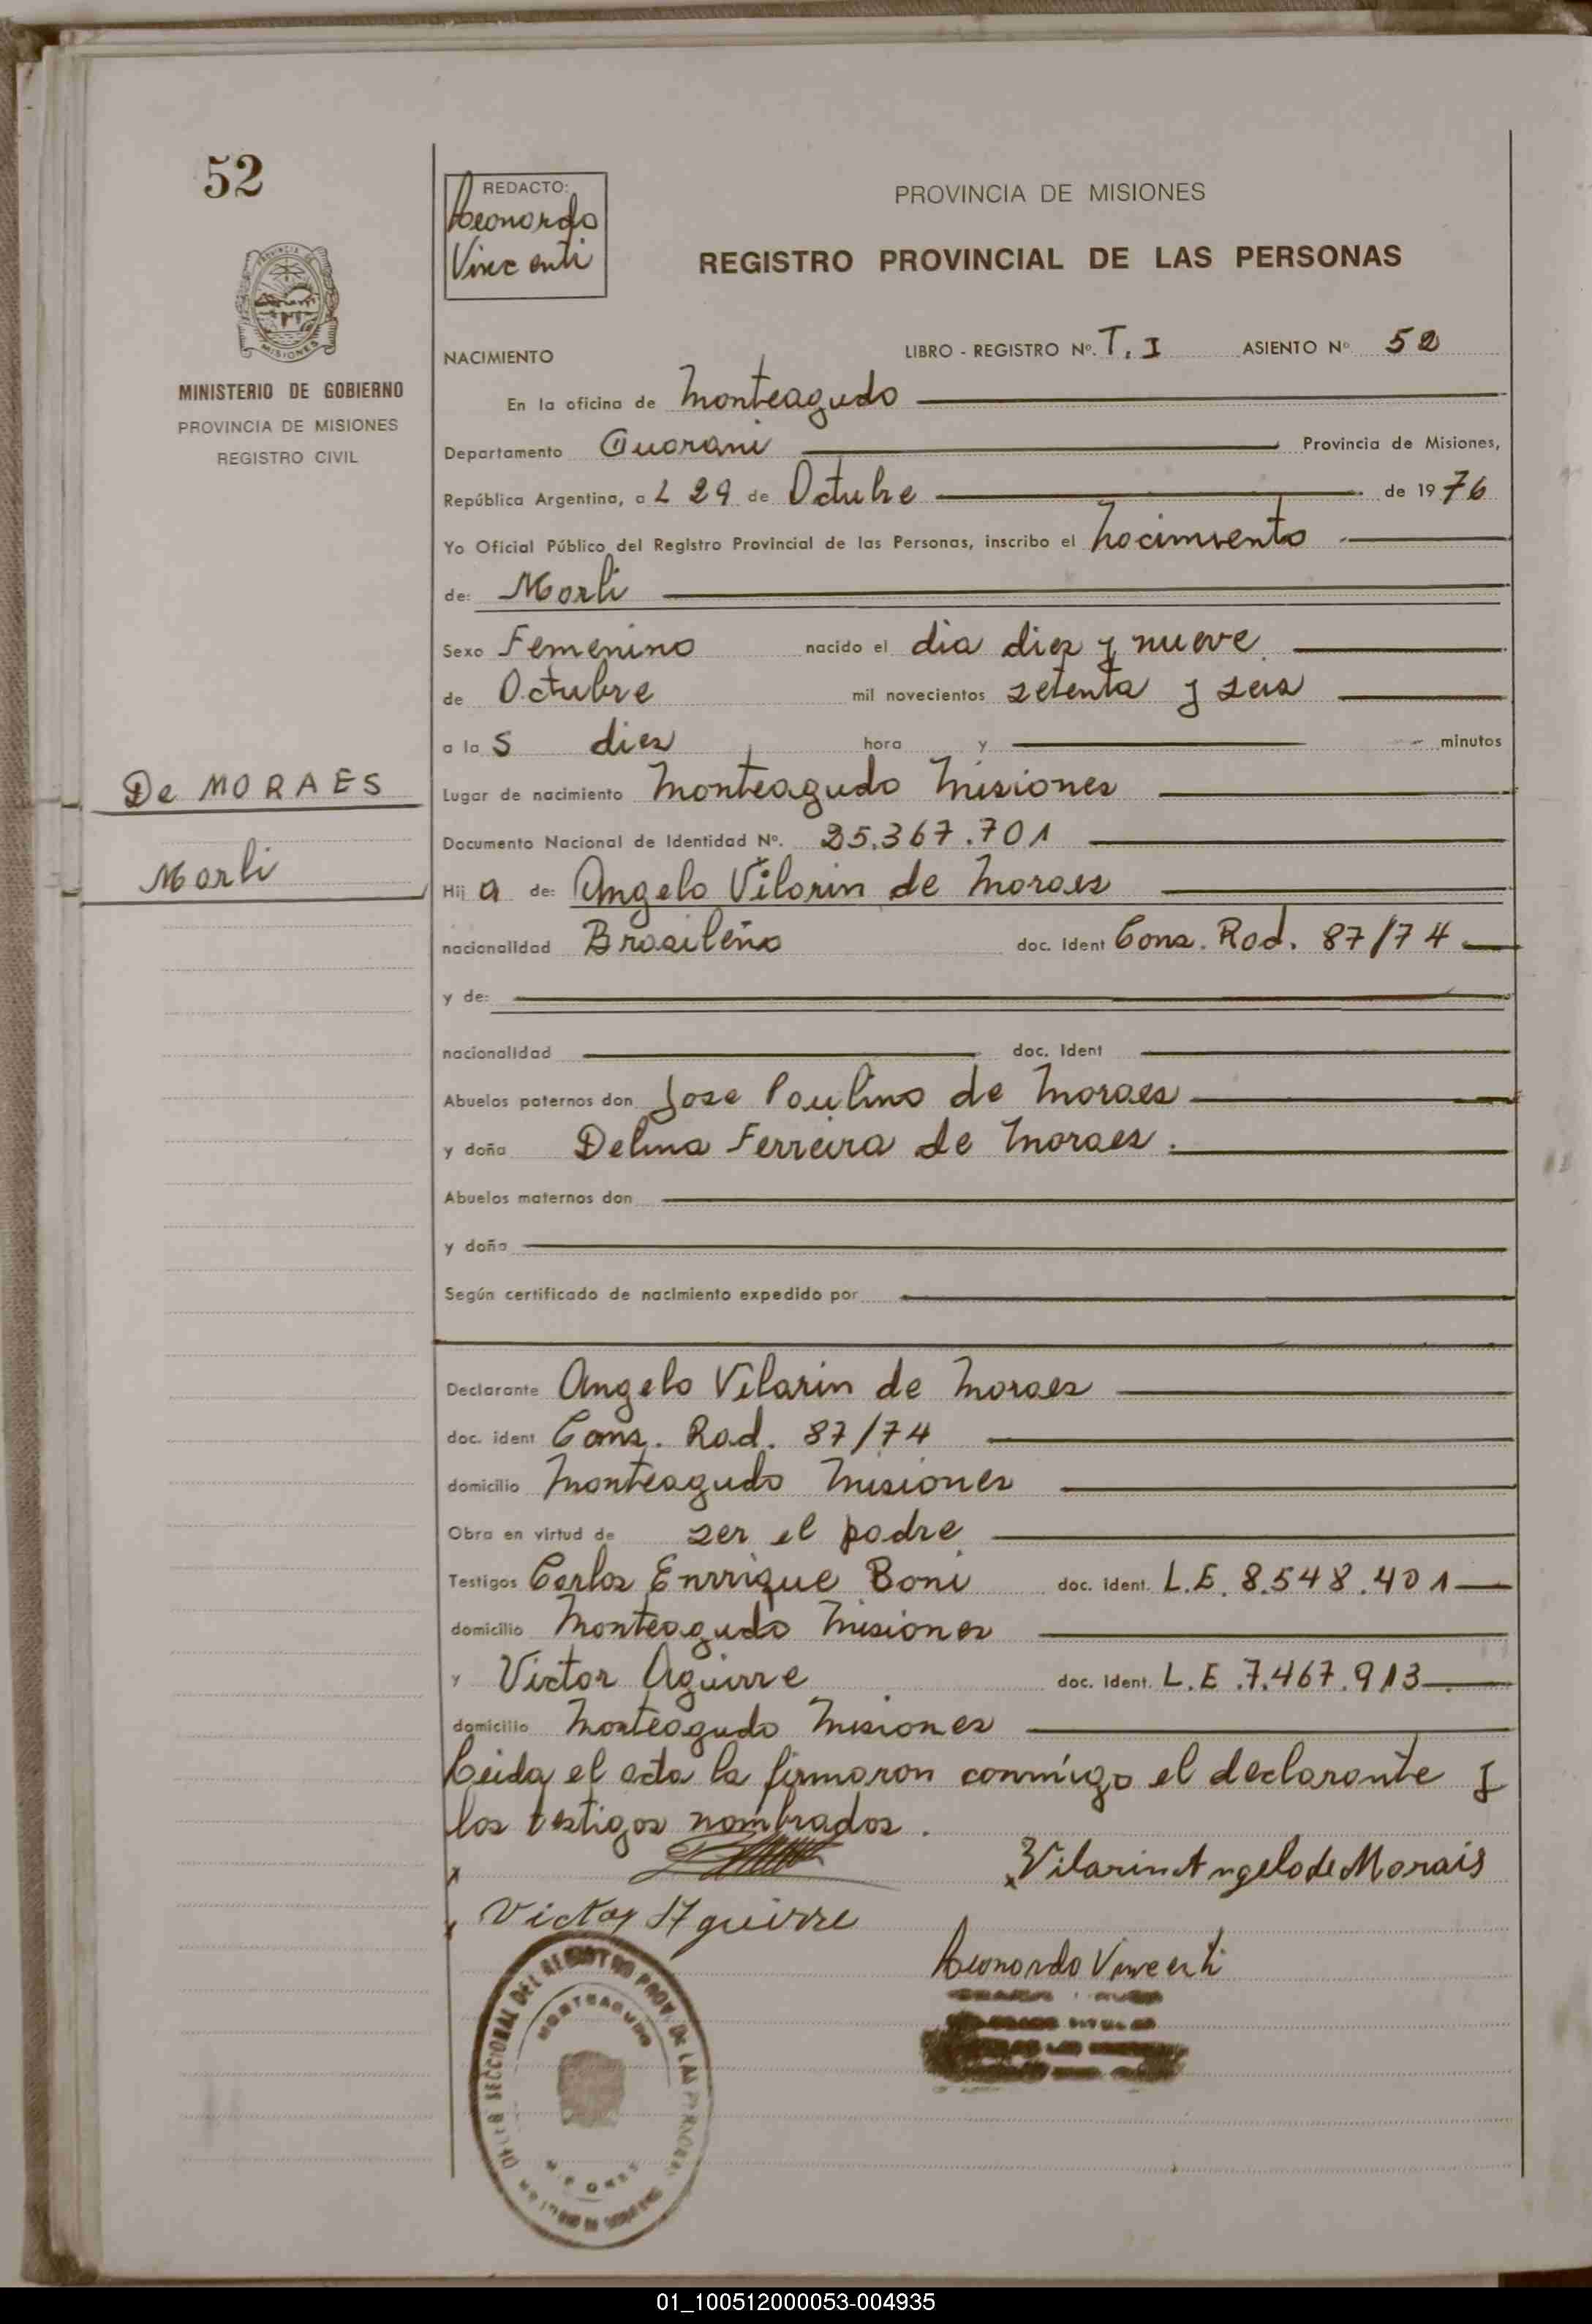 52
PROVINCIA DE
MISIONES
MINISTERIO DE GOBIERNO
PROVINCIA DE MISIONES
REGISTRO CIVIL
De MORAES
Marli
REDACTO:
Leonardo
Vincenti
PROVINCIA DE MISIONES
REGISTRO PROVINCIAL DE LAS PERSONAS
NACIMIENTO LIBRO - REGISTRO Nº. T. I ASIENTO Nº 52
En la oficina de Monteagudo
Departamento Guarani Provincia de Misiones,
República Argentina, a L 29 de Octubre de 1976
Yo Oficial Público del Registro Provincial de las Personas, inscribo el nacimiento
de: Marli
Sexo Femenino nacido el dia diez y nueve
de Octubre mil novecientos setenta y seis
a las diez hora y minutos
Lugar de nacimiento Monteagudo Misiones
Documento Nacional de Identidad Nº. 25.367.701
Hija de: Angelo Vilarin de Moraes
nacionalidad Brasileña doc. Ident Cons. Rad. 87/74
y de:
nacionalidad doc. Ident
Abuelos paternos don Jose Paulino de Moraes
y doña Delma Ferreira de Moraes.
Abuelos maternos don
y doña
Según certificado de nacimiento expedido por
Declarante Angelo Vilarin de Moraes
doc. ident Cons. Rad. 87/74
domicilio Monteagudo Misiones
Obra en virtud de ser el padre
Testigos Carlos Enrrique Boni doc. ident. L.E. 8.548.401
domicilio Monteagudo Misiones
y Victor Aguirre doc. Ident. L.E. 7.467.913
domicilio Monteagudo Misiones
Leida el acta la firmaron conmigo el declarante y
los testigos nombrados.
x x Vilarin Angelo de Morais
x Victor Aguirre
Leonardo Vincenti
SECCIONAL DEL REGISTRO PROV. DE LAS PERSONAS
MONTEAGUDO
01_100512000053-004935